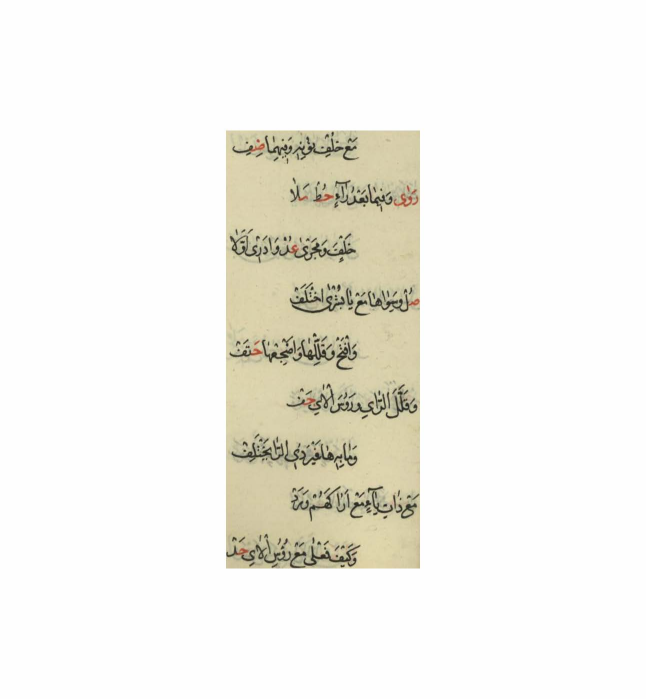 مَعْ خُلْفِ نُونِهِ وَفِيهِمَا ضِفِ
رَوٰى وَفِيمَا بَعْدَ رَآءٍ حُطْ مَلَا
خُلْفٌ وَمَجْرٰى عُدْ وَاَدْرٰى اَوَّلَا
صِلْ وَسِوَاهَا مَعَ يَا بُشْرٰى اخْتَلَفْ
وَافْتَحْ وَقَلِّلْهَا وَاَضْجِعْهَا حَتَفْ
وَقَلِّلِ الرَّا وَرُؤُسَ الْاٰيِ جِفْ
وَمَا بِهِ هَا غَيْرَ ذِى الرَّا يَخْتَلِفْ
مَعْ ذَاتِ يَآءٍ مَعَ اَرَاكَهُمْ وَرَدْ
وَكَيْفَ فَعْلٰى مَعْ رُؤُسِ الْاٰيِ حَدْ